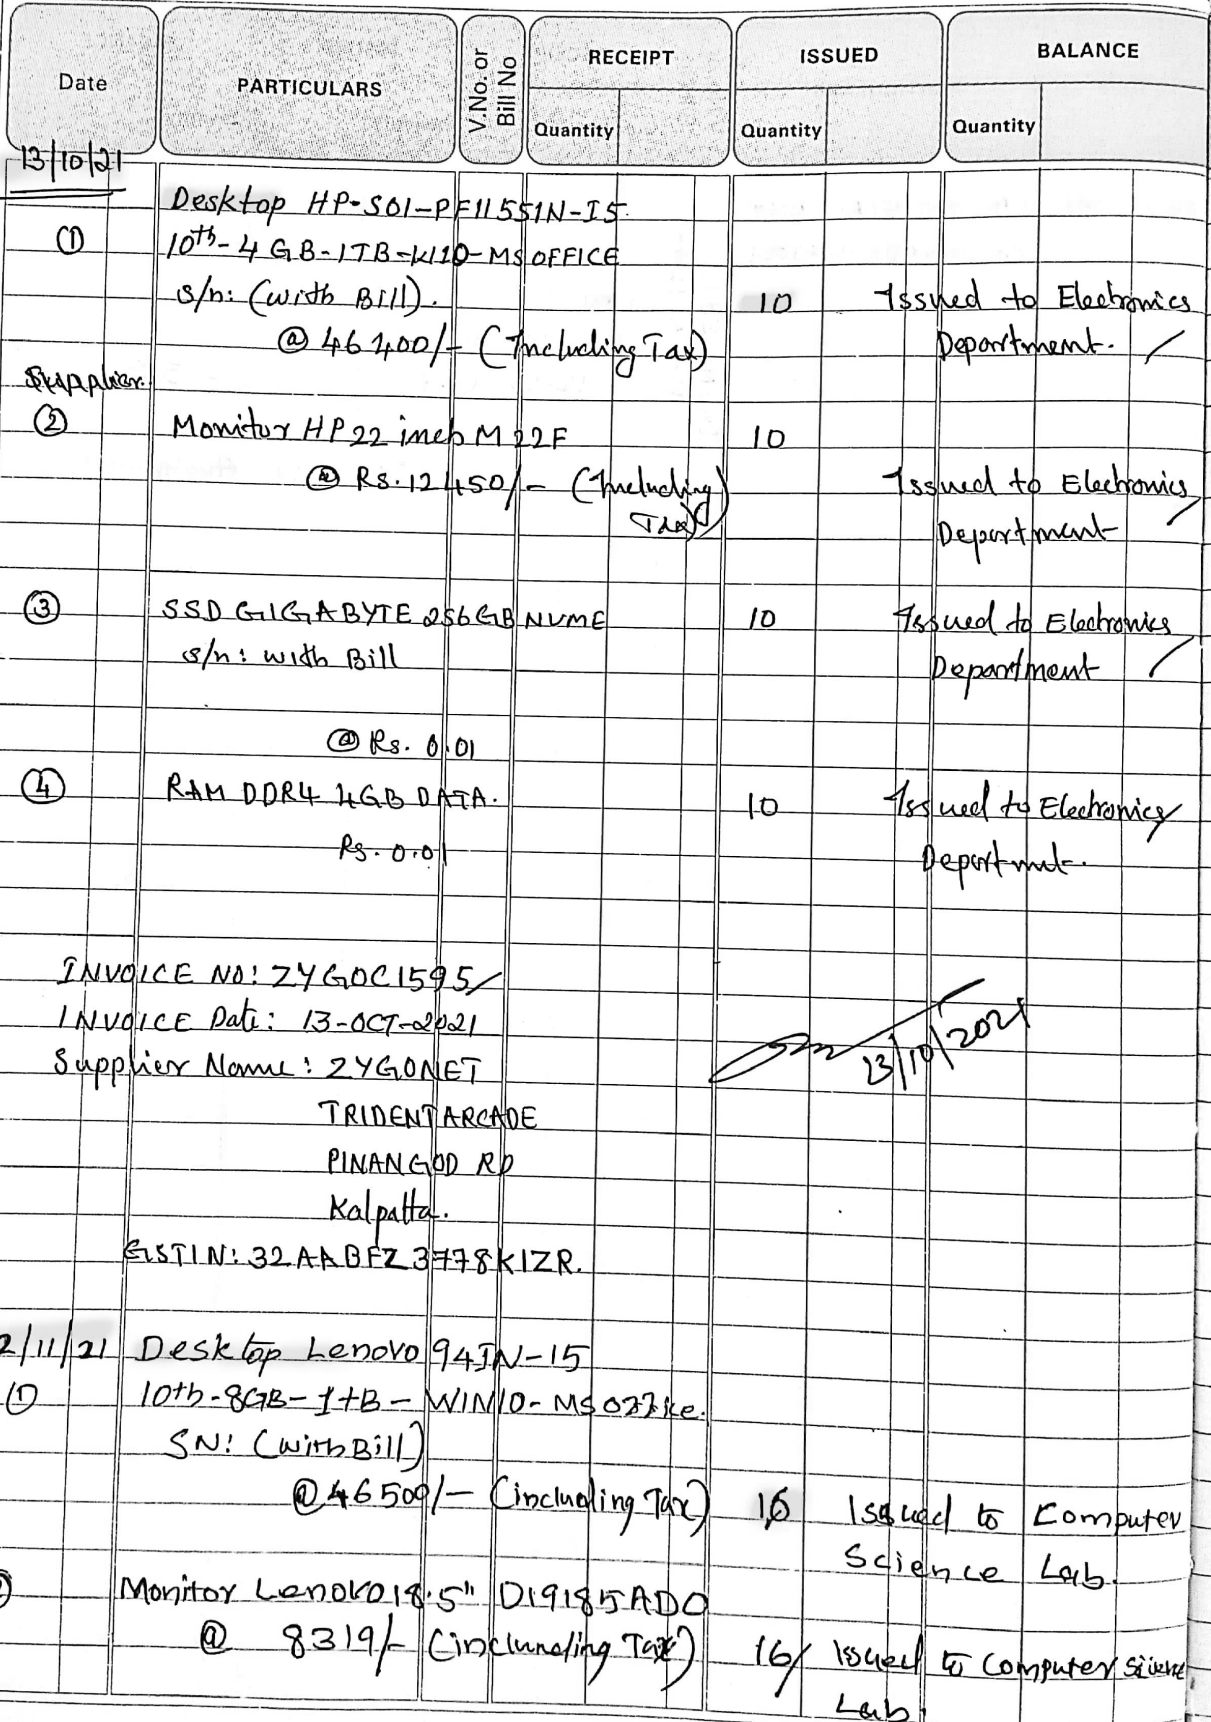 Date PARTICULARS V.No. or Bill No RECEIPT ISSUED BALANCE
Quantity Quantity Quantity
13/10/21
Desktop HP-S01-PF11551N-I5
(1) 10th-4GB-1TB-W10-MSOFFICE
s/n: (with Bill). 10 Issued to Electronics
@ 46400/- (Including Tax) Department.
Supplier.
(2) Monitor HP 22 inch M22F 10
@ Rs. 12450/- (Including Issued to Electronics
Tax) Department
(3) SSD GIGABYTE 256GB NVME 10 Issued to Electronics
s/n: with Bill Department
@ Rs. 0.01
(4) RAM DDR4 4GB DATA. 10 Issued to Electronics
Rs. 0.01 Departmnt.
INVOICE NO: ZYGOC1595/
INVOICE Date: 13-OCT-2021
13/10/2021
Supplier Name: ZYGONET
TRIDENT ARCADE
PINANGOD RD
Kalpatta.
GSTIN: 32AABFZ3778K1ZR.
2/11/21 Desktop Lenovo 94IN-15
(1) 10th-8GB-1TB-WIN10-MSoffice.
SN: (with Bill)
@ 46500/- (including Tax) 16 Issued to Computer
Science Lab.
Monitor Lenovo 18.5" D19185AD0
@ 8319/- (including Tax) 16/ Issued to Computer Science
Lab.